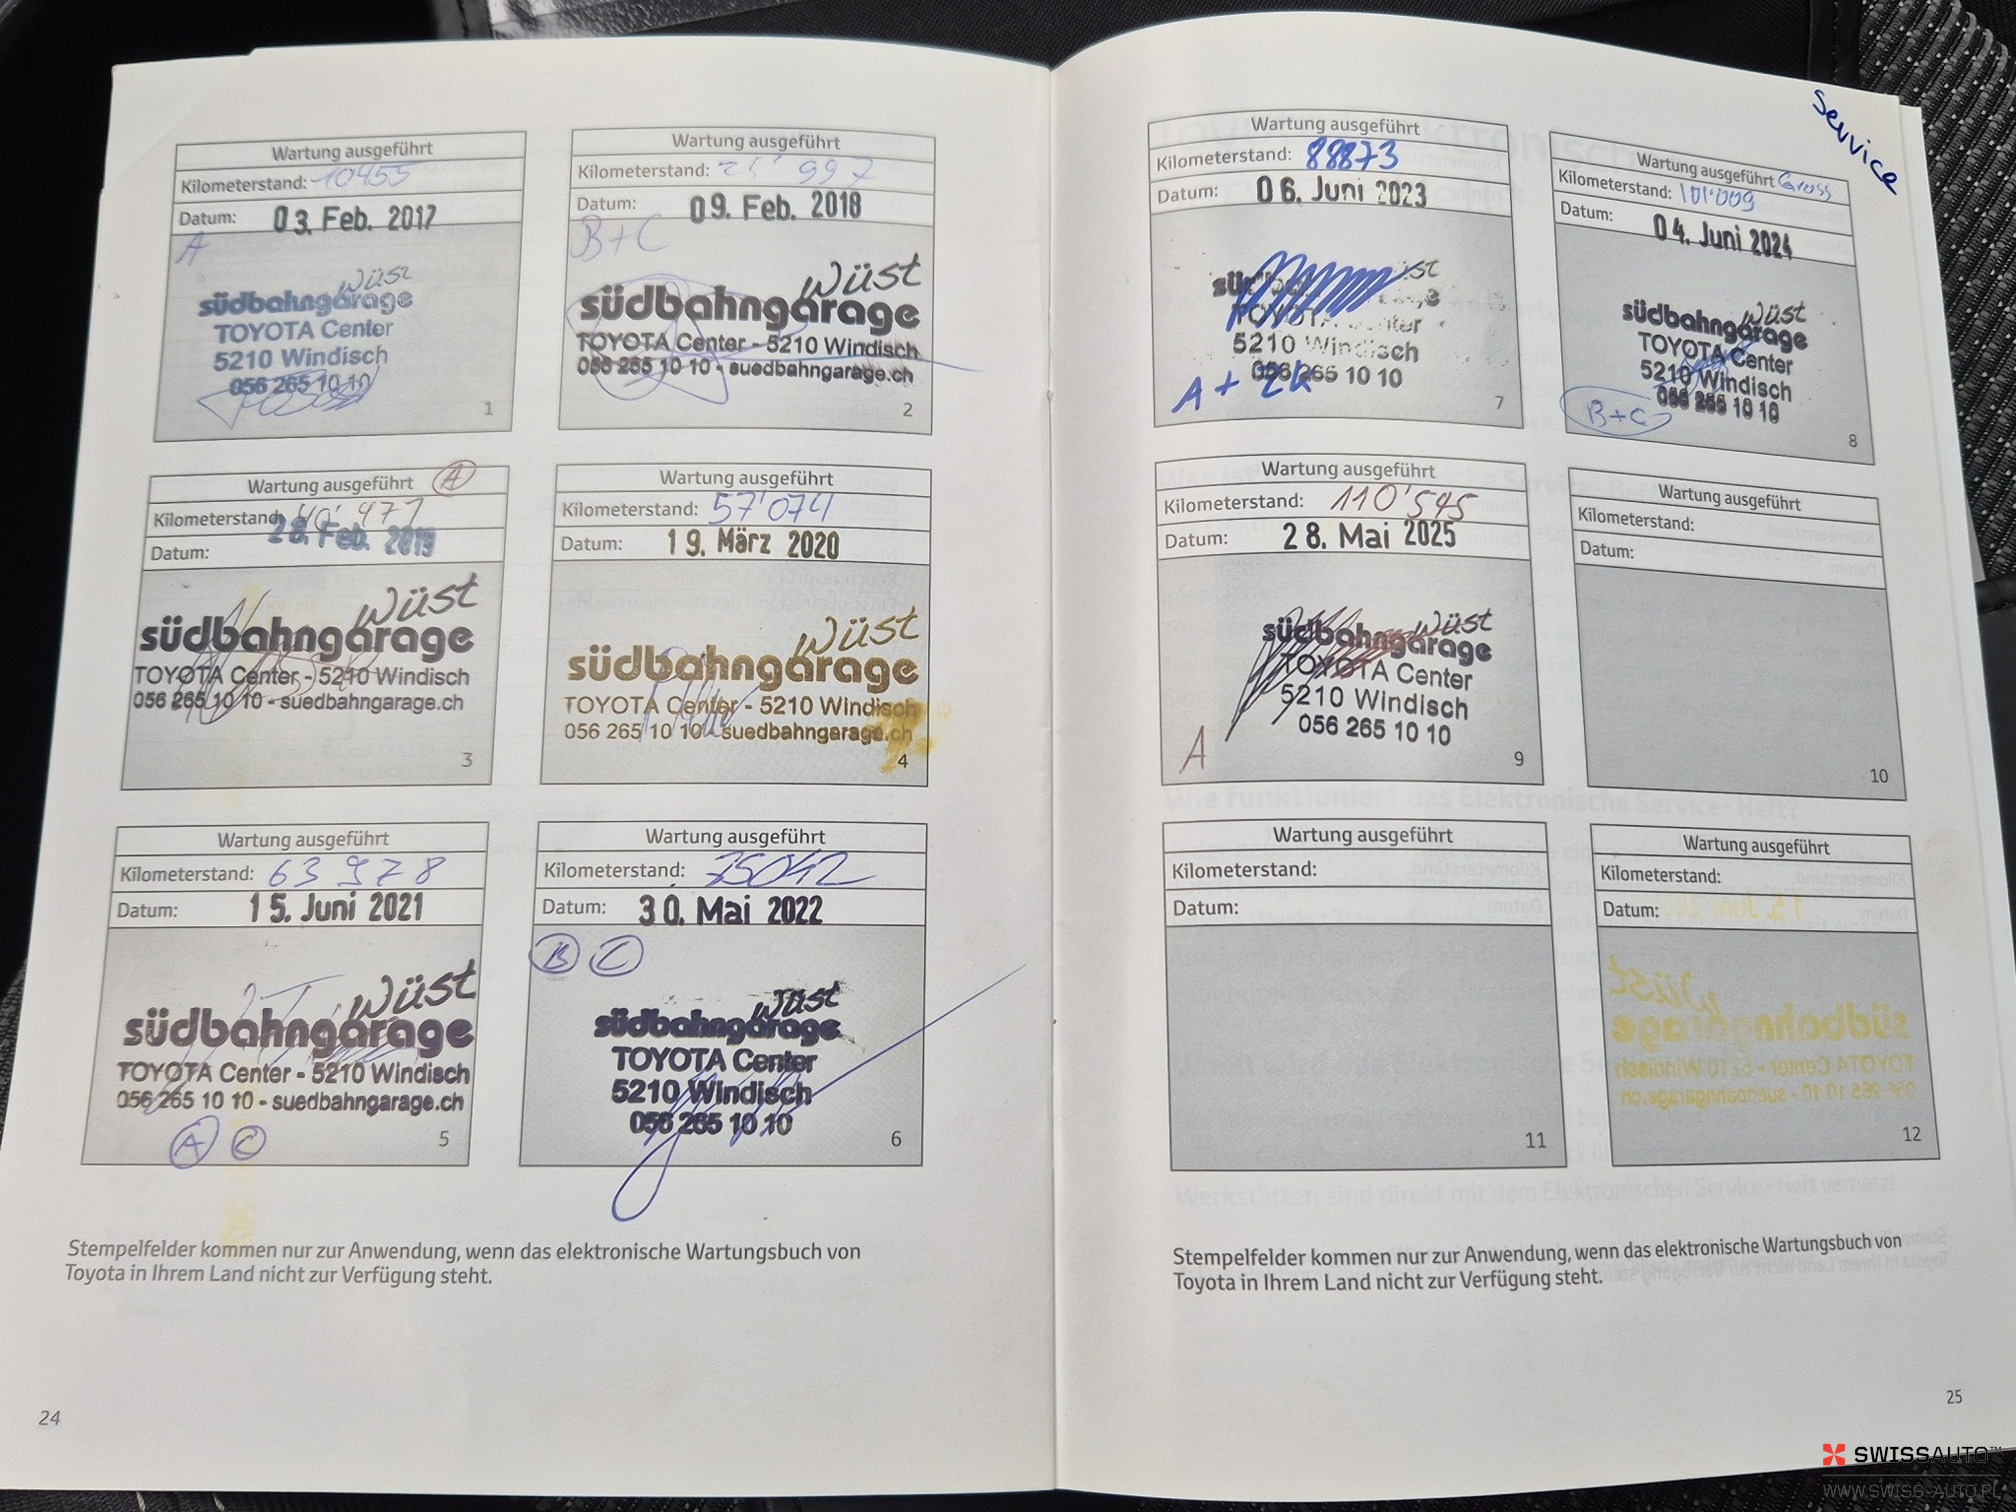 Wartung ausgeführt
Kilometerstand: 10455
Datum: 03. Feb. 2017
A
Wüst
südbahngarage
TOYOTA Center
5210 Windisch
056 265 10 10
1
Wartung ausgeführt
Kilometerstand: 25'997
Datum: 09. Feb. 2018
B+C
Wüst
südbahngarage
TOYOTA Center - 5210 Windisch
056 265 10 10 - suedbahngarage.ch
2
Wartung ausgeführt A
Kilometerstand: 40'471
Datum: 28. Feb. 2019
Wüst
südbahngarage
TOYOTA Center - 5210 Windisch
056 265 10 10 - suedbahngarage.ch
3
Wartung ausgeführt
Kilometerstand: 57'074
Datum: 19. März 2020
Wüst
südbahngarage
TOYOTA Center - 5210 Windisch
056 265 10 10 - suedbahngarage.ch
4
Wartung ausgeführt
Kilometerstand: 63978
Datum: 15. Juni 2021
Wüst
südbahngarage
TOYOTA Center - 5210 Windisch
056 265 10 10 - suedbahngarage.ch
A C
5
Wartung ausgeführt
Kilometerstand: 75042
Datum: 30. Mai 2022
B C
Wüst
südbahngarage
TOYOTA Center
5210 Windisch
056 265 10 10
6
Stempelfelder kommen nur zur Anwendung, wenn das elektronische Wartungsbuch von
Toyota in Ihrem Land nicht zur Verfügung steht.
24
Service
Wartung ausgeführt
Kilometerstand: 88873
Datum: 06. Juni 2023
TOYOTA Center
5210 Windisch
056 265 10 10
A + ZK
7
Wartung ausgeführt Gross
Kilometerstand: 101'009
Datum: 04. Juni 2024
Wüst
südbahngarage
TOYOTA Center
5210 Windisch
056 265 10 10
B+C
8
Wartung ausgeführt
Kilometerstand: 110'545
Datum: 28. Mai 2025
Wüst
südbahngarage
TOYOTA Center
5210 Windisch
056 265 10 10
A
9
Wartung ausgeführt
Kilometerstand:
Datum:
10
Wartung ausgeführt
Kilometerstand:
Datum:
11
Wartung ausgeführt
Kilometerstand:
Datum:
12
Stempelfelder kommen nur zur Anwendung, wenn das elektronische Wartungsbuch von
Toyota in Ihrem Land nicht zur Verfügung steht.
25
SWISSAUTO™
WWW.SWISS-AUTO.PL